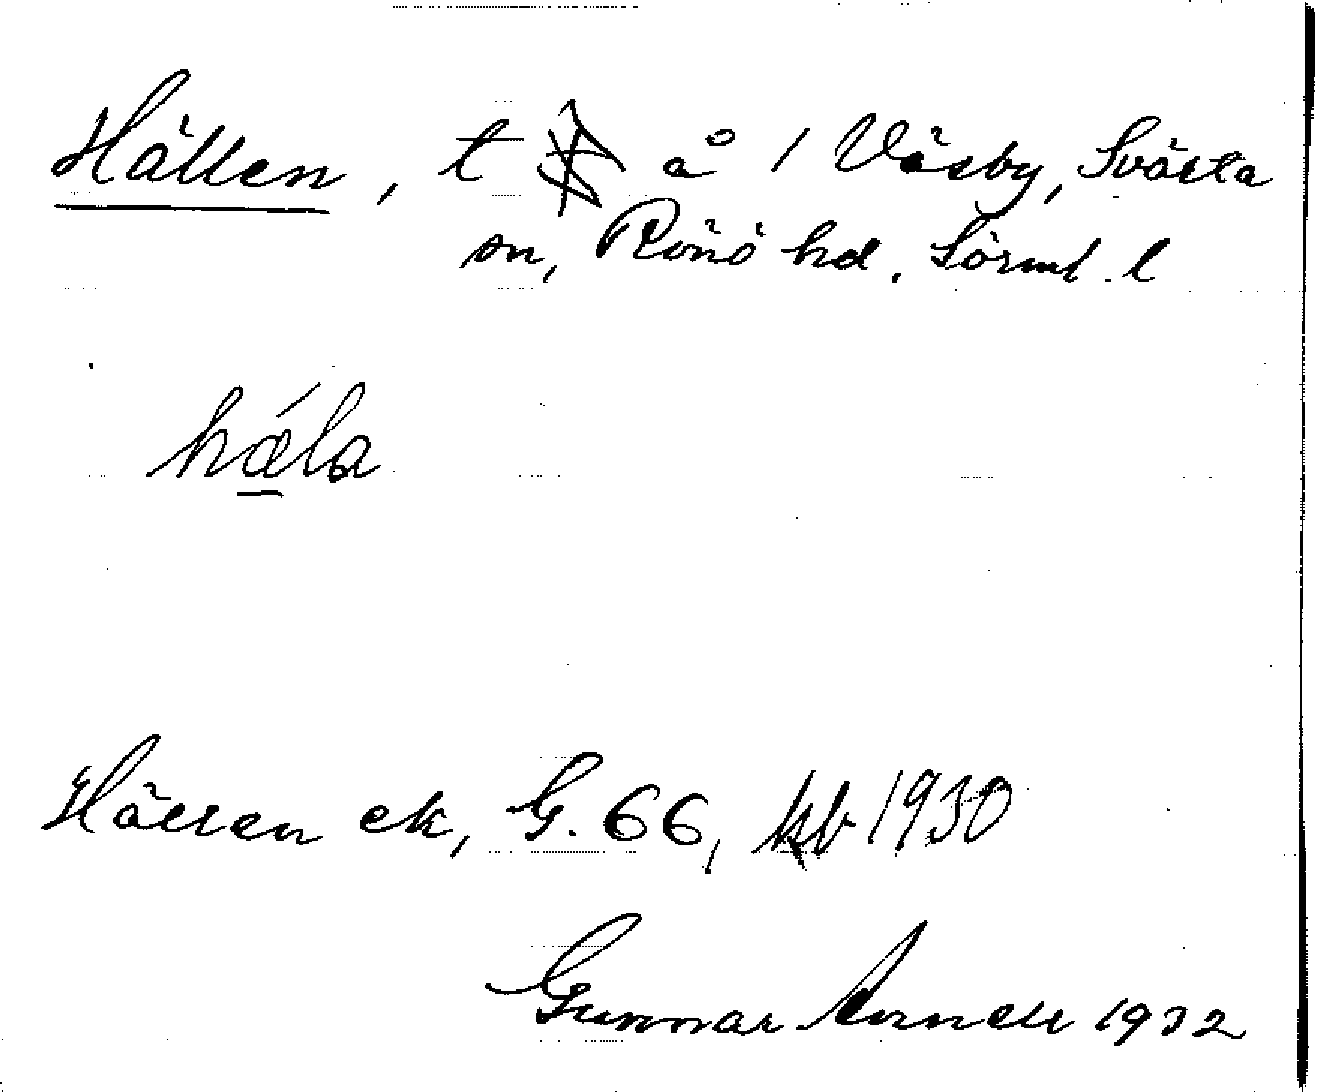 Hällen, t å / Väsby, Svärta
sn, Rönö hd. Sörml. l
hǽla
Hällen ek, G. 66, kb 1930
Gunnar Arnell 1932